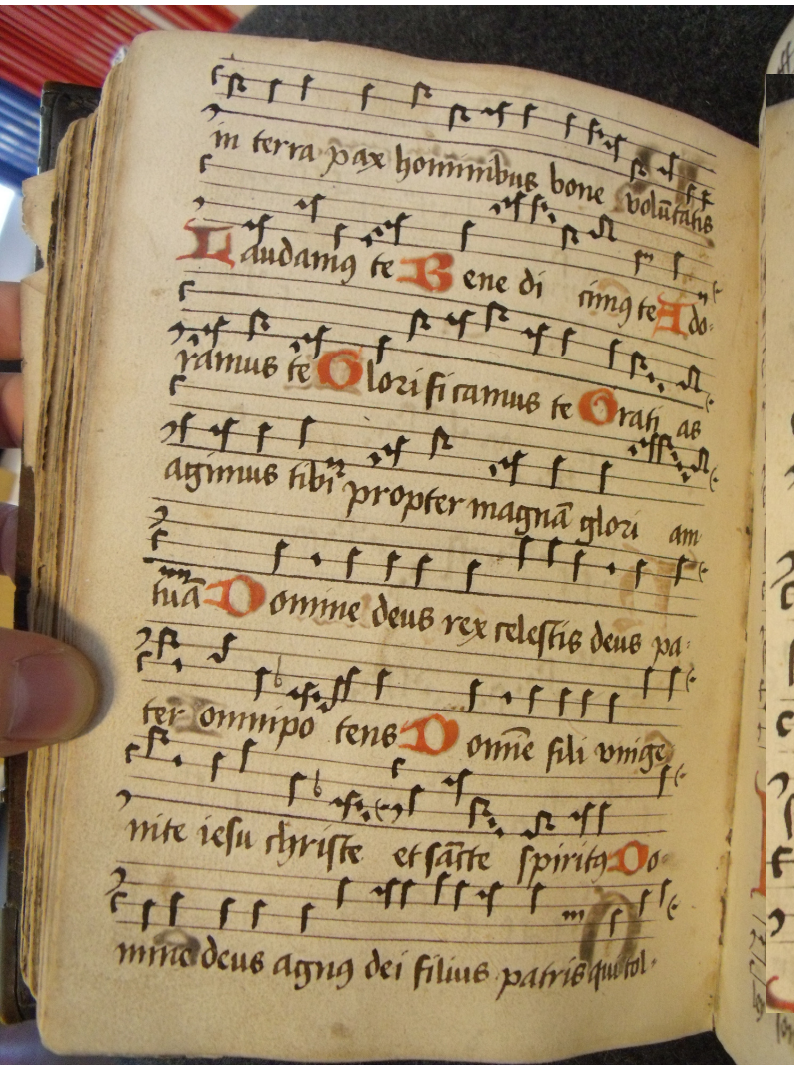 in terra pax hominibus bone volūtatis
Laudamꝰ te Bene di cimꝰ te Ado-
ramus te Glorificamus te Grati as
agimus tibi propter magnā glori am
tuā Domine deus rex celestis deus pa-
ter omnipo tens Domīe fili vnige
nite iesu christe et sācte spiritꝰ Do-
mine deus agnꝰ dei filius patris qui tol-